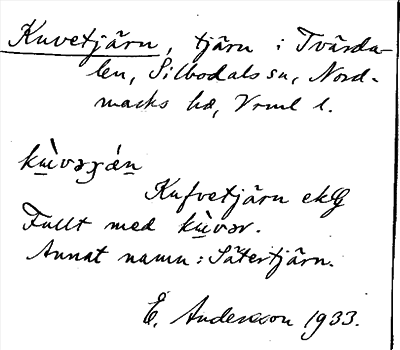 Kuvetjärn, tjärn i Tvärda-
len, Silbodals sn, Nord-
marks hd, Vrml l.
kù̱vəɟǽn̠
Kufvetjärn ekG
Fullt med kù̱vər.
Annat namn: Sätertjärn.
E. Andersson 1933.